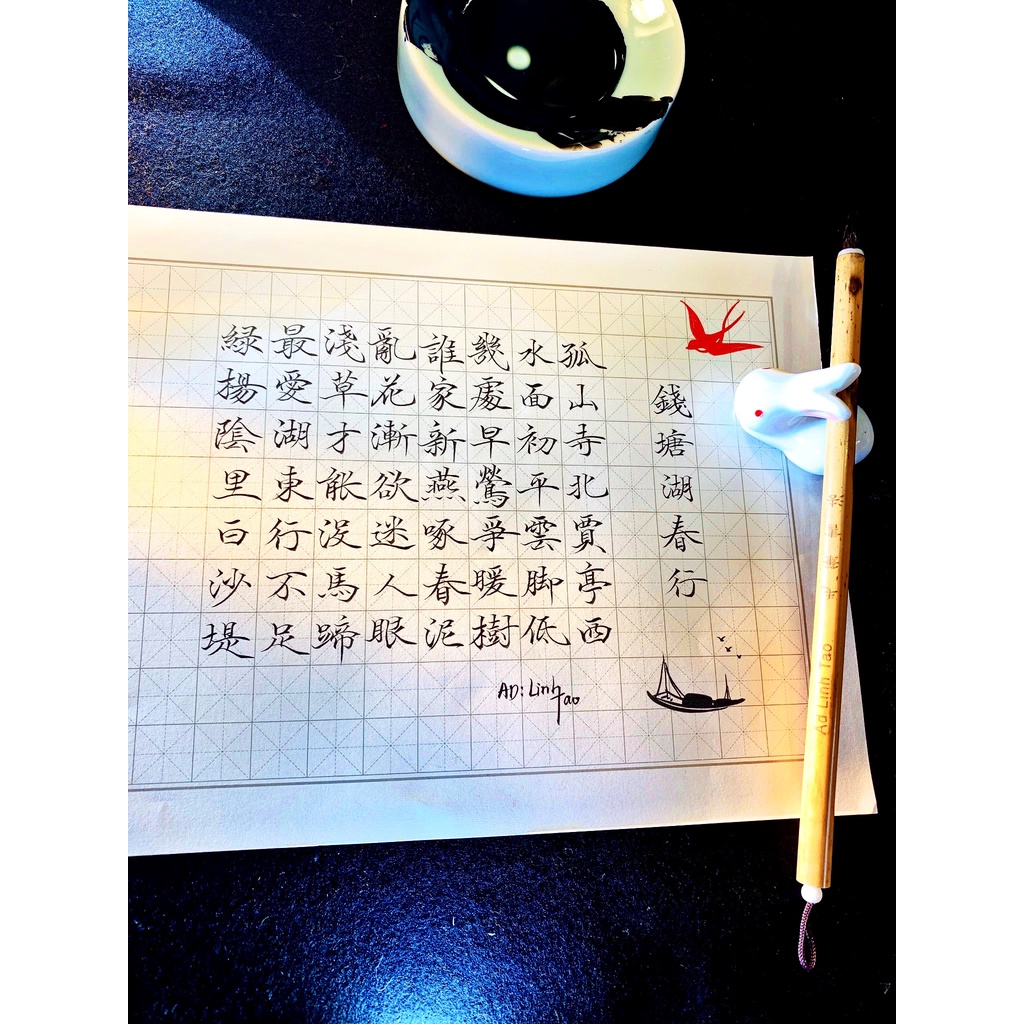 錢塘湖春行
孤山寺北賈亭西
水面初平雲脚低
幾處早鶯爭暖樹
誰家新燕啄春泥
亂花漸欲迷人眼
淺草才能没馬蹄
最愛湖東行不足
緑揚陰里白沙堤
AD: Linh
Tao
Ad Linh Tao